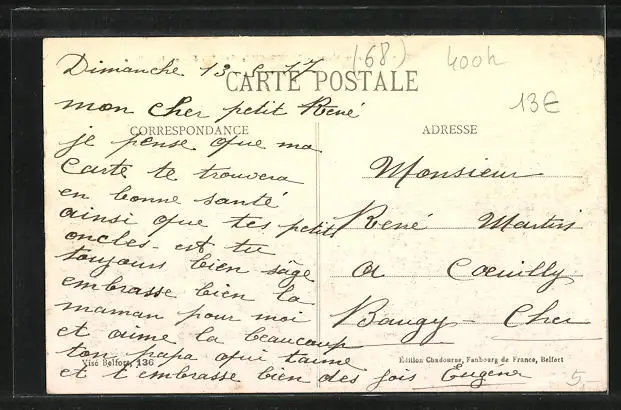 Dimanche 13 - 17
(68)
400h
CARTE POSTALE
13€
mon cher petit René
CORRESPONDANCE
je pense que ma
carte te trouvera
en bonne santé
ainsi que tes petits
oncles - es tu
toujours bien sage
embrasse bien la
maman pour moi
et aime la beaucoup
ton papa qui t'aime
et t'embrasse bien des fois Eugène
Visé Belfort, 136
ADRESSE
Monsieur
René Martin
a Cœuilly
Baugy - Cher
Édition Chadourne, Faubourg de France, Belfort
5-